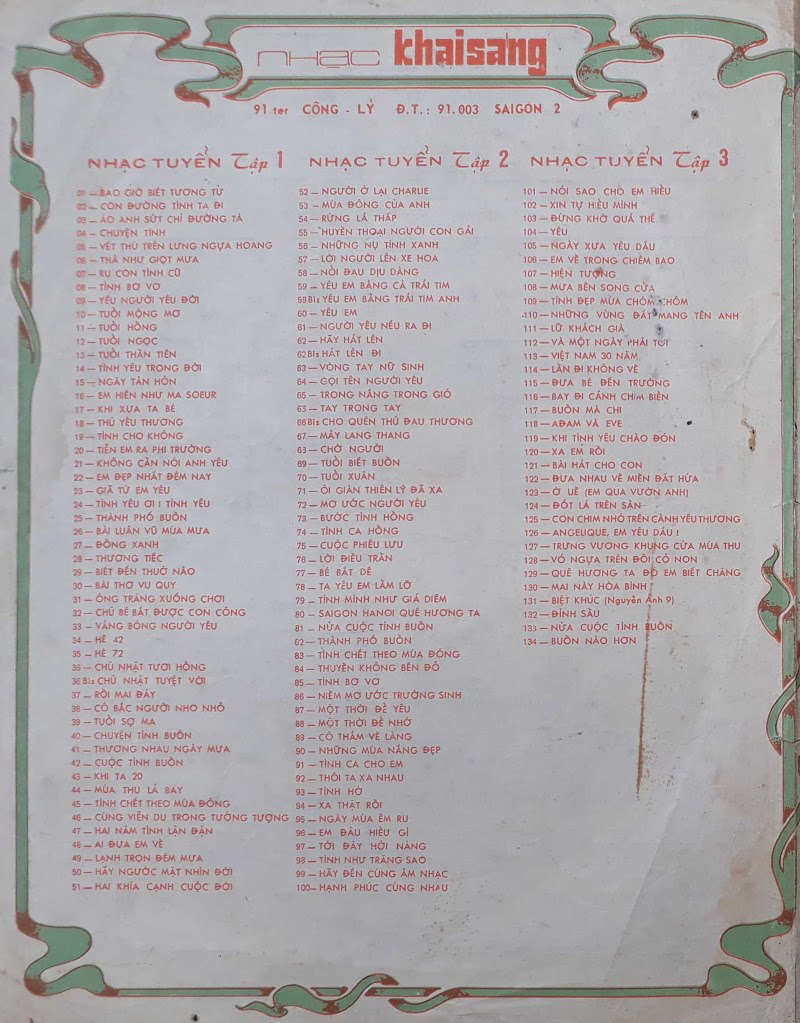 nhạc khaisáng
91 ter CÔNG - LÝ Đ.T.: 91.003 SAIGON 2
NHẠC TUYỂN Tập 1
01 — BAO GIỜ BIẾT TƯƠNG TƯ
02 — CON ĐƯỜNG TÌNH TA ĐI
03 — ÁO ANH SỨT CHỈ ĐƯỜNG TÀ
04 — CHUYỆN TÌNH
05 — VẾT THÙ TRÊN LƯNG NGỰA HOANG
06 — THÀ NHƯ GIỌT MƯA
07 — RU CON TÌNH CŨ
08 — TÌNH BƠ VƠ
09 — YÊU NGƯỜI YÊU ĐỜI
10 — TUỔI MỘNG MƠ
11 — TUỔI HỒNG
12 — TUỔI NGỌC
13 — TUỔI THẦN TIÊN
14 — TÌNH YÊU TRONG ĐỜI
15 — NGÀY TÂN HÔN
16 — EM HIỀN NHƯ MA SOEUR
17 — KHI XƯA TA BÉ
18 — THÚ YÊU THƯƠNG
19 — TÌNH CHO KHÔNG
20 — TIỄN EM RA PHI TRƯỜNG
21 — KHÔNG CẦN NÓI ANH YÊU
22 — EM ĐẸP NHẤT ĐÊM NAY
23 — GIÃ TỪ EM YÊU
24 — TÌNH YÊU ƠI ! TÌNH YÊU
25 — THÀNH PHỐ BUỒN
26 — BÀI LUÂN VŨ MÙA MƯA
27 — ĐỒNG XANH
28 — THƯƠNG TIẾC
29 — BIẾT ĐẾN THUỞ NÀO
30 — BÀI THƠ VU QUY
31 — ÔNG TRĂNG XUỐNG CHƠI
32 — CHÚ BÉ BẮT ĐƯỢC CON CÔNG
33 — VẮNG BÓNG NGƯỜI YÊU
34 — HÈ 42
35 — HÈ 72
36 — CHỦ NHẬT TƯƠI HỒNG
36 Bis CHỦ NHẬT TUYỆT VỜI
37 — RỒI MAI ĐÂY
38 — CÔ BẮC NGƯỜI NHO NHỎ
39 — TUỔI SỢ MA
40 — CHUYỆN TÌNH BUỒN
41 — THƯƠNG NHAU NGÀY MƯA
42 — CUỘC TÌNH BUỒN
43 — KHI TA 20
44 — MÙA THU LÁ BAY
45 — TÌNH CHẾT THEO MÙA ĐÔNG
46 — CÔNG VIÊN DU TRONG TƯỞNG TƯỢNG
47 — HAI NĂM TÌNH LẬN ĐẬN
48 — AI ĐƯA EM VỀ
49 — LẠNH TRỌN ĐÊM MƯA
50 — HÃY NGƯỚC MẶT NHÌN ĐỜI
51 — HAI KHÍA CẠNH CUỘC ĐỜI
NHẠC TUYỂN Tập 2
52 — NGƯỜI Ở LẠI CHARLIE
53 — MÙA ĐÔNG CỦA ANH
54 — RỪNG LÁ THẤP
55 — HUYỀN THOẠI NGƯỜI CON GÁI
56 — NHỮNG NỤ TÌNH XANH
57 — LỜI NGƯỜI LÊN XE HOA
58 — NỖI ĐAU DỊU DÀNG
59 — YÊU EM BẰNG CẢ TRÁI TIM
59 Bis YÊU EM BẰNG TRÁI TIM ANH
60 — YÊU EM
61 — NGƯỜI YÊU NẾU RA ĐI
62 — HÃY HÁT LÊN
62 Bis HÁT LÊN ĐI
63 — VÒNG TAY NỮ SINH
64 — GỌI TÊN NGƯỜI YÊU
65 — TRONG NẮNG TRONG GIÓ
63 — TAY TRONG TAY
66 Bis CHO QUÊN THÚ ĐAU THƯƠNG
67 — MÂY LANG THANG
63 — CHỜ NGƯỜI
69 — TUỔI BIẾT BUỒN
70 — TUỔI XUÂN
71 — ÔI GIÀN THIÊN LÝ ĐÃ XA
72 — MƠ ƯỚC NGƯỜI YÊU
73 — BƯỚC TÌNH HỒNG
74 — TÌNH CA HỒNG
75 — CUỘC PHIÊU LƯU
76 — LỜI ĐIẾU TRẦN
77 — BÉ BẮT DẾ
78 — TA YÊU EM LẦM LỠ
79 — TÌNH MÌNH NHƯ GIÁ DIỄM
80 — SAIGON HANOI QUÊ HƯƠNG TA
81 — NỬA CUỘC TÌNH BUỒN
62 — THÀNH PHỐ BUỒN
83 — TÌNH CHẾT THEO MÙA ĐÔNG
84 — THUYỀN KHÔNG BẾN ĐỖ
85 — TÌNH BƠ VƠ
86 — NIỀM MƠ ƯỚC TRƯỜNG SINH
87 — MỘT THỜI ĐỂ YÊU
88 — MỘT THỜI ĐỂ NHỚ
89 — CỎ THẮM VỀ LÀNG
90 — NHỮNG MÙA NẮNG ĐẸP
91 — TÌNH CA CHO EM
92 — THÔI TA XA NHAU
93 — TÌNH HỜ
94 — XA THẬT RỒI
95 — NGÀY MÙA ÊM RU
96 — EM ĐÂU HIỂU GÌ
97 — TỚI ĐÂY HỠI NÀNG
98 — TÌNH NHƯ TRĂNG SAO
99 — HÃY ĐẾN CÙNG ÂM NHẠC
100 — HẠNH PHÚC CÙNG NHAU
NHẠC TUYỂN Tập 3
101 — NÓI SAO CHO EM HIỂU
102 — XIN TỰ HIỂU MÌNH
103 — ĐỪNG KHỜ QUÁ THẾ
104 — YÊU
105 — NGÀY XƯA YÊU DẤU
106 — EM VỀ TRONG CHIÊM BAO
107 — HIỆN TƯỢNG
108 — MƯA BÊN SONG CỬA
109 — TÌNH ĐẸP MÙA CHÔM CHÔM
110 — NHỮNG VÙNG ĐẤT MANG TÊN ANH
111 — LỮ KHÁCH GIÀ
112 — VÀ MỘT NGÀY PHẢI TỚI
113 — VIỆT NAM 30 NĂM
114 — LẦN ĐI KHÔNG VỀ
115 — ĐƯA BÉ ĐẾN TRƯỜNG
116 — BAY ĐI CÁNH CHIM BIỂN
117 — BUỒN MÀ CHI
118 — AĐAM VÀ EVE
119 — KHI TÌNH YÊU CHÀO ĐÓN
120 — XA EM RỒI
121 — BÀI HÁT CHO CON
122 — ĐƯA NHAU VỀ MIỀN ĐẤT HỨA
123 — Ờ UỀ (EM QUA VƯỜN ANH)
124 — ĐỐT LÁ TRÊN SÂN
125 — CON CHIM NHỎ TRÊN CÀNH YÊU THƯƠNG
126 — ANGELIQUE, EM YÊU DẤU !
127 — TRƯNG VƯƠNG KHUNG CỬA MÙA THU
128 — VÓ NGỰA TRÊN ĐỒI CỎ NON
129 — QUÊ HƯƠNG TA ĐÓ EM BIẾT CHĂNG
130 — MAI NÀY HÒA BÌNH
131 — BIỆT KHÚC (Nguyễn Ánh 9)
132 — ĐỈNH SẦU
133 — NỬA CUỘC TÌNH BUỒN
134 — BUỒN NÀO HƠN